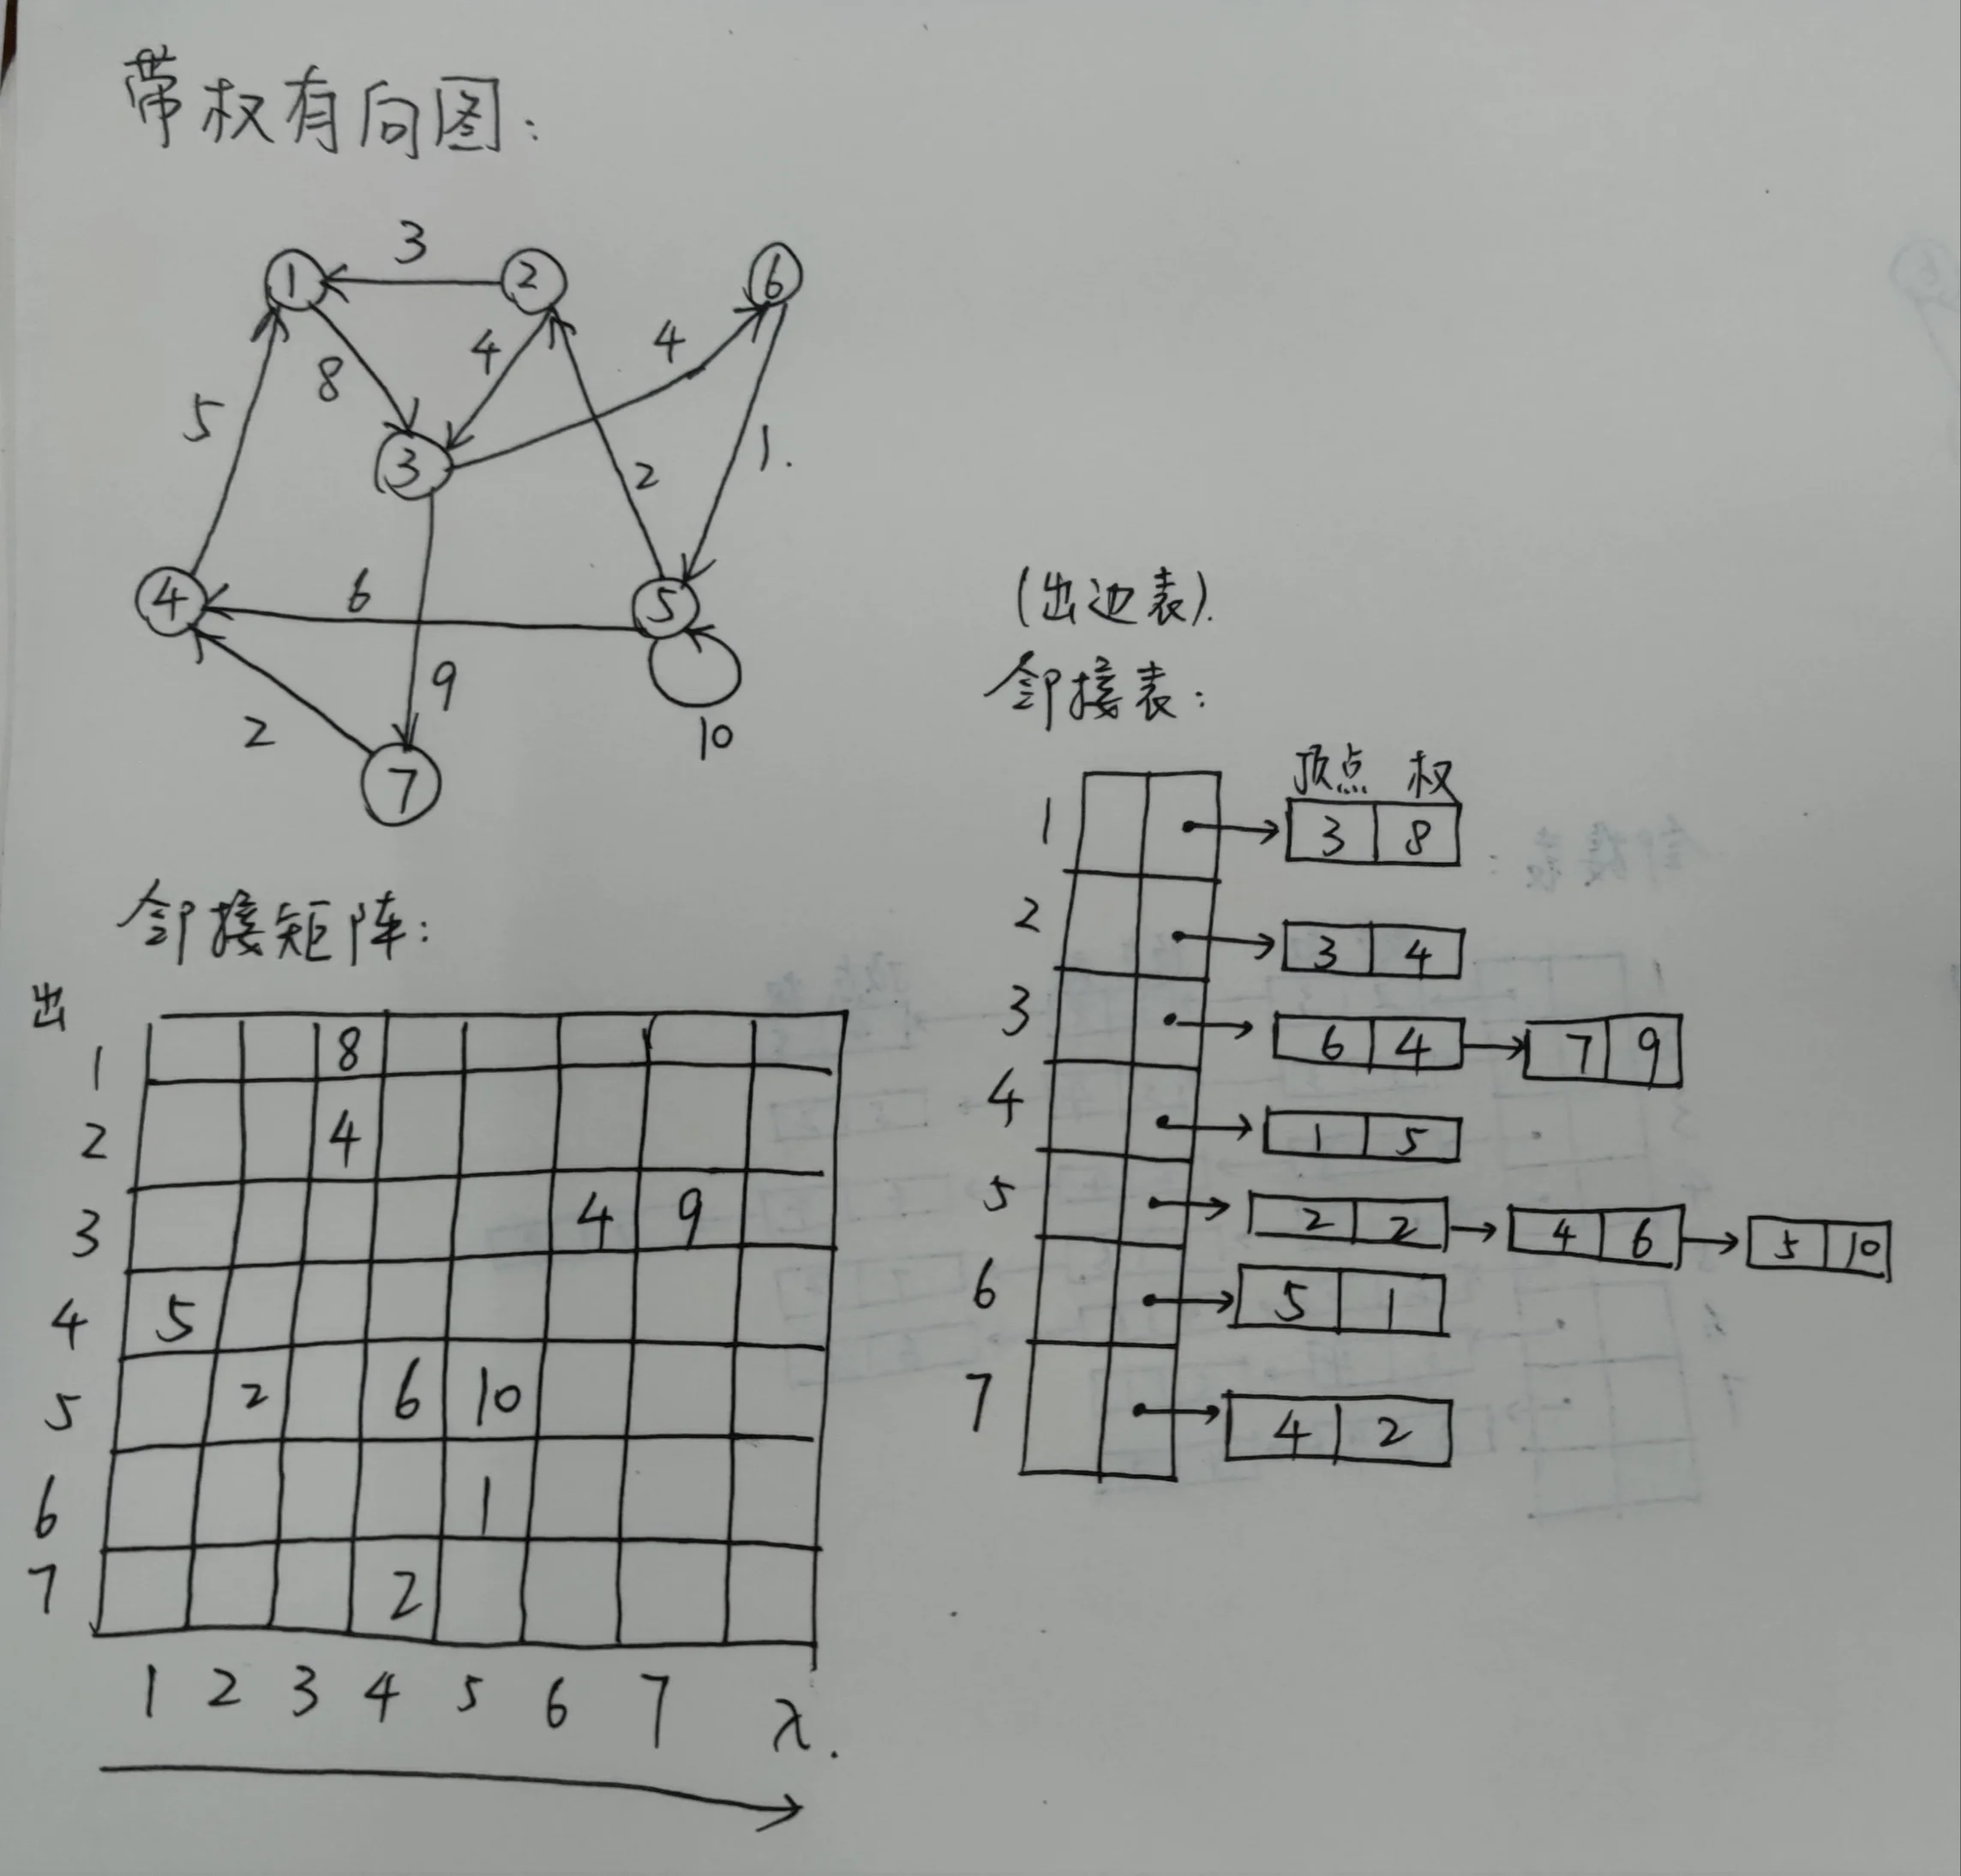 带权有向图:
3
1 2 6
8 4 4
5
3
2 1.
4 6 5
9
2 10
7
(出边表).
邻接表:
顶点 权
1 3 8
2 3 4
3 6 4 7 9
4 1 5
5 2 2 4 6 5 10
6 5 1
7 4 2
邻接矩阵:
出
1 8
2 4
3 4 9
4 5
5 2 6 10
6 1
7 2
1 2 3 4 5 6 7 入.